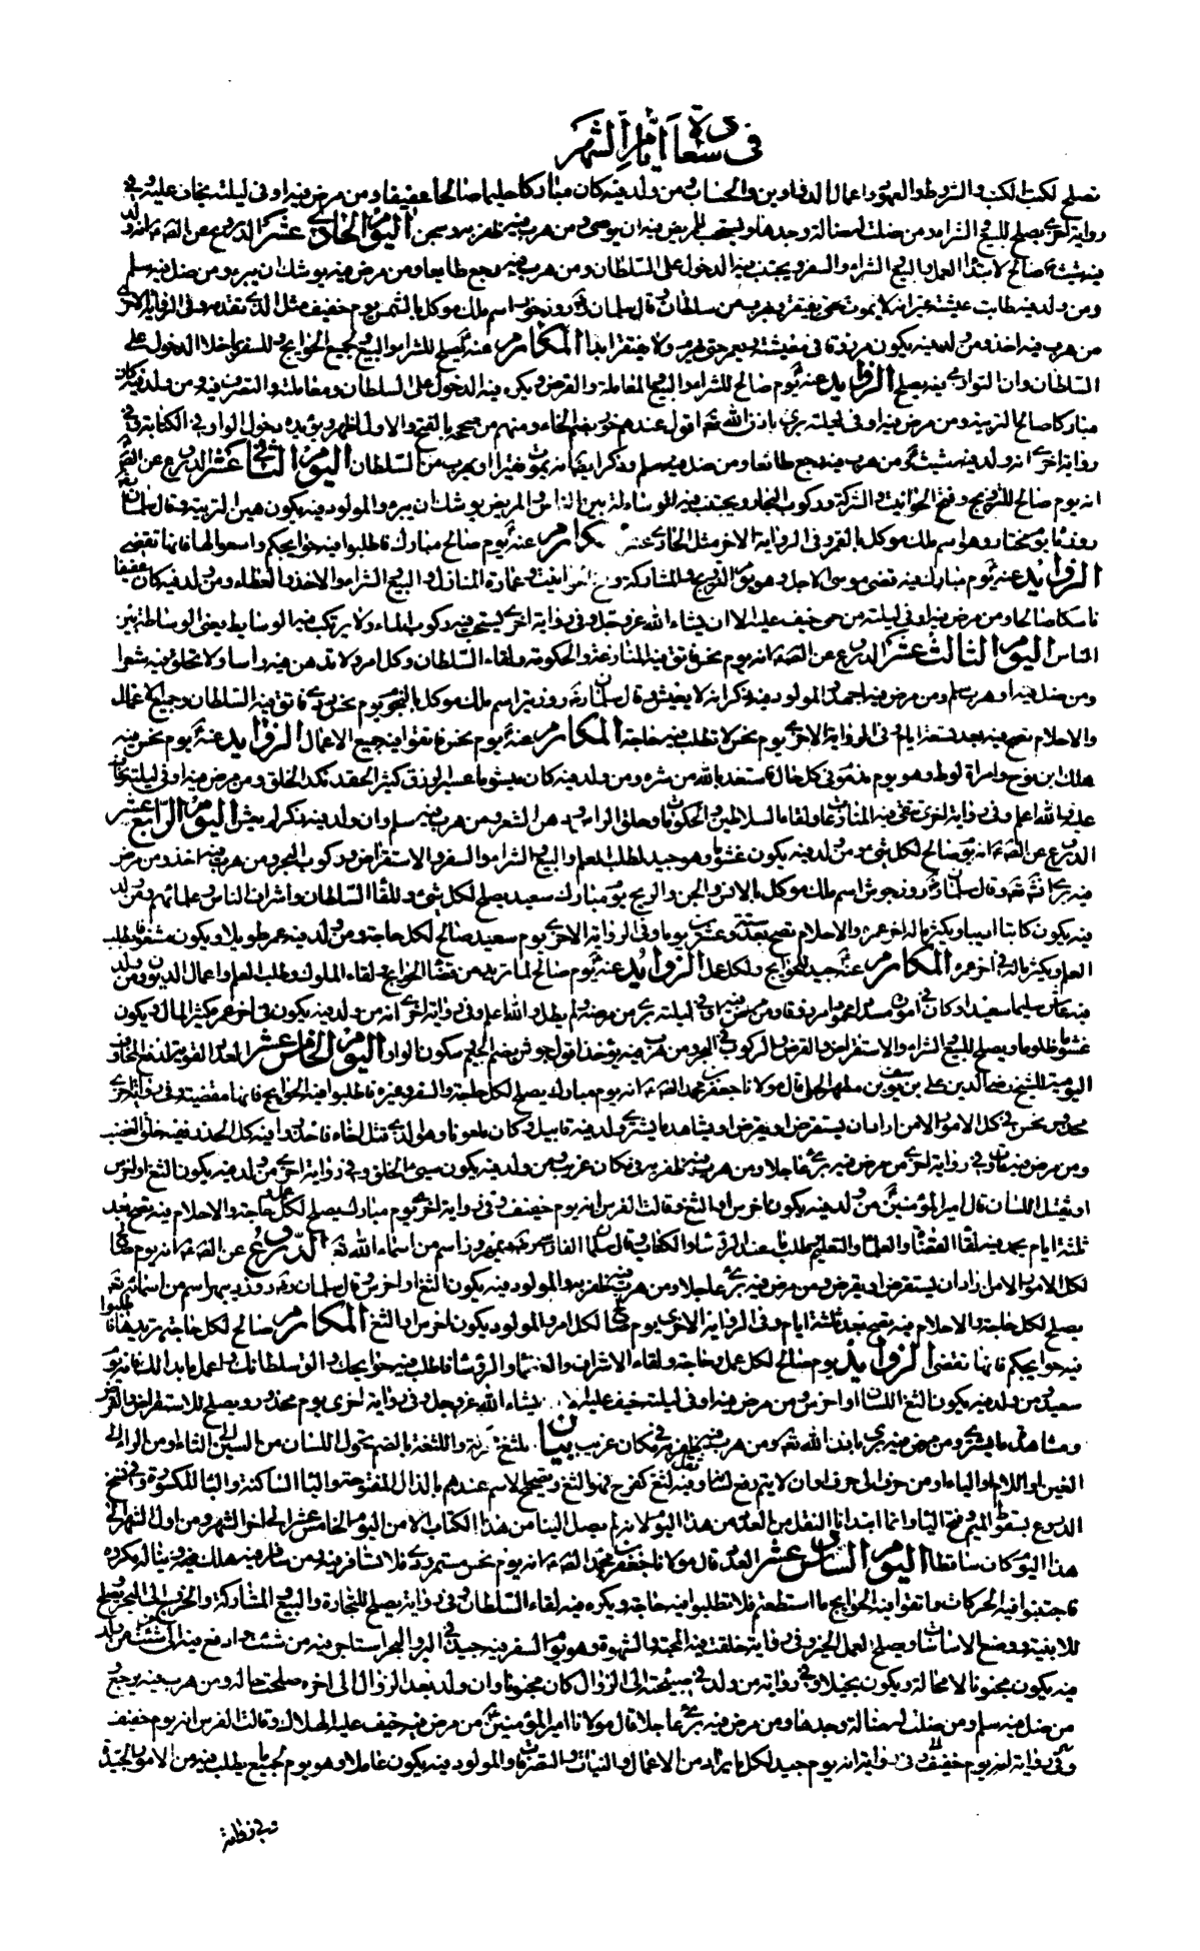 في سعادة ايام الشهر
تصلح لكتب الكتب والشروط والعهود واعمال الدواوين والحساب ومن ولد فيه كان مباركا حليما صالحا عفيفا ومن مرض فيه او في ليلته يخاف عليه وفي
رواية اخرى يصلح للبيع والشراء ومن ضلت له ضالة وجدها ويستحب للمريض فيه ان يوصى ومن هرب فيه ظفر به وسجن اليوم الحادي عشر الدروع عن الصادق انه ولد
فيه شيث صالح لابتداء العمل والبيع والشراء والسفر ويجتنب فيه الدخول على السلطان ومن هرب فيه رجع طايعا ومن مرض فيه يوشك ان يبرء ومن ضل فيه سلم
ومن ولد فيه طابت عيشته غير انه لا يموت حتى يفتقر ويهرب من سلطان وقال سلمان روز خور اسم ملك موكل بالشمس يوم خفيف مثل الذي تقدمه وفي الرواية الاخرى
من هرب فيه اخذ ومن ولد فيه يكون مرزوقا في معيشته ويعمر حتى يهرم ولا يفتقر ابدا المكارم عنه يصلح للشراء والبيع ولجميع الحوايج وللسفر ما خلا الدخول على
السلطان وان التواري فيه يصلح الزوايد عنه يوم صالح للشراء والبيع والمعاملة والقرض ويكره فيه الدخول على السلطان ومعاملته والتصرف فيه ومن ولد فيه كان
مباركا صالح التربية ومن مرض فيه او في ليلته برئ باذن الله اقول عندهم خور بضم الخاء ومنهم من صححه بالفتح والاول اظهر ويؤيده دخول الواو في الكتابة وفي
رواية اخرى انه ولد فيه شيث ومن هرب فيه رجع طائعا ومن ضل فيه سلم وذكر ايضا انه يموت فقيرا او يهرب من السلطان اليوم الثاني عشر الدروع عن الصادق
انه يوم صالح للتزويج وفتح الحوانيت والشركة وركوب البحار ويجتنب فيه الوساطة بين الناس والمريض يوشك ان يبرء والمولود فيه يكون هين التربية وقال سلمان
روز ماه يوم مختار وهو اسم ملك موكل بالقمر وفي الرواية الاخر مثل الحادي عشر المكارم عنه يوم صالح مبارك فاطلبوا فيه حوايجكم واسعوا لها فانها تقضى
الزوايد عنه يوم مبارك فيه قضى موسى الاجل وهو يوم التزويج والمشاركة وفتح الحوانيت وعمارة المنازل والبيع والشراء والاخذ والعطاء ومن ولد فيه كان عفيفا
ناسكا صالحا ومن مرض فيه او في ليلته من حمى خيف عليه الا ان يشاء الله عز وجل وفي رواية اخرى يستحب فيه ركوب الماء ولا يرتكب فيه الوسايط يعني الوساطة بين
الناس اليوم الثالث عشر الدروع عن الصادق انه يوم نحس فاتق فيه المنازعة والحكومة ولقاء السلطان وكل امر ولا تدهن فيه راسا ولا تحلق فيه شعرا
ومن ضل فيه او هرب سلم ومن مرض فيه اجهد والمولود فيه ذكر انه لا يعيش وقال سلمان روز تير اسم ملك موكل بالنجوم يوم نحس ردي فاتق فيه السلطان وجميع الاعمال
والاحلام تصح فيه بعد تسعة ايام وفي الرواية الاخرى يوم نحس لا تطلب فيه حاجة المكارم عنه يوم نحس فاتقوا فيه جميع الاعمال الزوايد عنه يوم نحس فيه
هلك ابن نوح وامراة لوط وهو يوم مذموم في كل حال فاستعذ بالله من شره ومن ولد فيه كان مشوما عسير الرزق كثير الحقد نكد الخلق ومن مرض فيه او في ليلته يخاف
عليه والله اعلم وفي رواية اخرى تتقى فيه المنازعات ولقاء السلاطين والحكومات وحلق الراس ودهن الشعر ومن هرب فيه سلم وان ولد فيه ذكر لم يعش اليوم الرابع عشر
الدروع عن الصادق انه يوم صالح لكل شيء ومن ولد فيه يكون غشوما وهو جيد لطلب العلم والبيع والشراء والسفر والاستقراض وركوب البحر ومن هرب فيه اخذ ومن مرض
فيه برئ ان شاء الله وقال سلمان روز جوش اسم ملك موكل بالانس والجن والريح يوم مبارك سعيد يصلح لكل شيء وللقاء السلطان واشراف الناس وعلمائهم ومن ولد
فيه يكون كاتبا اديبا ويكثر ماله اخر عمره والاحلام تصح بعد ستة وعشرين يوما وفي الرواية الاخرى يوم سعيد صالح لكل حاجة ومن ولد فيه عمر طويلا ويكون مشغوفا بطلب
العلم ويكثر ماله في اخر عمره المكارم عنه جيد للحوايج ولكل عمل الزوايد عنه يوم صالح لما تريد من قضاء الحوايج ولقاء الملوك وطلب العلم واعمال الديون ومن ولد
فيه عاش سليما سعيدا وكان في اموره مسددا محمودا مرزوقا ومن مرض فيه او في ليلته برئ من مرضه ولم يطل والله اعلم وفي رواية اخرى انه من ولد فيه يكون في اخر عمره كثير المال ويكون
غشوما ظلوما ويصلح للبيع والشراء والاستقراض والقرض والركوب في البحر ومن هرب فيه يؤخذ اقول جوش بضم الجيم وسكون الواو اليوم الخامس عشر العدد القوية لدفع المخاوف
اليومية للشيخ رضي الدين علي بن يوسف بن مطهر الحلي قال مولانا جعفر بن محمد الصادق انه يوم مبارك يصلح لكل حاجة والسفر وغيره فاطلبوا فيه الحوايج فانها مقضية وفي رواية اخرى
محذور نحس في كل الامور الا من اراد ان يستقرض او يقرض او يشاهد ما يشتري ولد فيه قابيل وكان ملعونا وهو الذي قتل اخاه فاحذروا فيه كل الحذر ففيه خلق الغضب
ومن مرض فيه مات وفي رواية اخرى من مرض فيه برئ عاجلا ومن هرب فيه ظفر به في مكان غريب ومن ولد فيه يكون سيئ الخلق وفي رواية اخرى من ولد فيه يكون الثغ او اخرس
او ثقيل اللسان قال امير المؤمنين من ولد فيه يكون اخرس او الثغ وقالت الفرس انه يوم خفيف وفي رواية اخرى يوم مبارك يصلح لكل عمل وحاجة والاحلام فيه تصح بعد
ثلثة ايام يحمد فيه لقاء القضاة والعلماء والتعليم وطلب ما عند الرؤساء والكتاب وقال سلمان الفارسي روز ديمهر اسم من اسماء الله الدروع عن الصادق انه يوم صالح
لكل الامور الا من اراد ان يستقرض او يقرض ومن مرض فيه برئ عاجلا ومن هرب فيه ظفر به والمولود فيه يكون الثغ او اخرس وقال سلمان روز ديمهر اسم من اسمائه
يصلح لكل حاجة والاحلام فيه تصح بعد ثلثة ايام وفي الرواية الاخرى يوم صالح لكل امر والمولود يكون اخرس او الثغ المكارم صالح لكل حاجة تريدها فاطلبوا
فيه حوايجكم فانها تقضى الزوايد يوم صالح لكل عمل وحاجة ولقاء الاشراف والعظماء والرؤساء فاطلب فيه حوايجك والق سلطانك واعمل ما بدا لك فانه يوم
سعيد ومن ولد فيه يكون الثغ اللسان او اخرس ومن مرض فيه او في ليلته خيف عليه الا ان يشاء الله عز وجل وفي رواية اخرى يوم محذور ويصلح للاستقراض والقرض
ومشاهدة ما يشترى ومن مرض فيه برئ باذن الله ومن هرب فيه يظفر به في مكان غريب بيان الثغ واللثغة بالضم تحول اللسان من السين الى الثاء او من الراء الى
الغين او اللام او الياء او من حرف الى حرف او ان لا يتم رفع لسانه وفيه ثقل لثغ كفرح فهو الثغ وتصحيح الاسم عندهم بالدال المفتوحة والياء الساكنة والباء المكسورة وفي نسخ
الدروع بسقوط الميم وفتح الياء وانما ابتدانا النقل من العدد من هذا اليوم لانه لم يصل الينا من هذا الكتاب الا من اليوم الخامس عشر الى اخر الشهر ومن اول الشهر الى
هذا اليوم كان ساقطا اليوم السادس عشر العدد قال مولانا جعفر بن محمد الصادق انه يوم نحس مستمر ردي فلا تسافر فيه ومن سافر فيه هلك ويناله مكروه
فاجتنبوا فيه الحركات واتقوا فيه الحوايج ما استطعتم فلا تطلبوا فيه حاجة ويكره فيه لقاء السلطان وفي رواية يصلح للتجارة والبيع والمشاركة والخروج الى البحر ويصلح
للابنية ووضع الاساسات ويصلح لعمل الخير وفي رواية خلقت فيه المحبة والشهوة وهو يوم السفر فيه جيد في البر والبحر استاجر فيه من شئت وادفع فيه الى من شئت ومن ولد
فيه يكون مجنونا لا محالة ويكون بخيلا وفي رواية من ولد في صبيحته الى الزوال كان مجنونا وان ولد بعد الزوال الى اخره صلحت حاله ومن هرب فيه يرجع
من ضل فيه سلم ومن ضلت له ضالة وجدها ومن مرض فيه برئ عاجلا قال مولانا امير المؤمنين من مرض فيه خيف عليه الهلاك وقالت الفرس انه يوم خفيف
وفي رواية انه يوم خفيف وفي رواية انه يوم جيد لكل ما يراد من الاعمال والنيات والتصرفات والمولود فيه يكون عاملا وهو يوم لجميع ما يطلب فيه من الامور الجيدة
وفي رواية